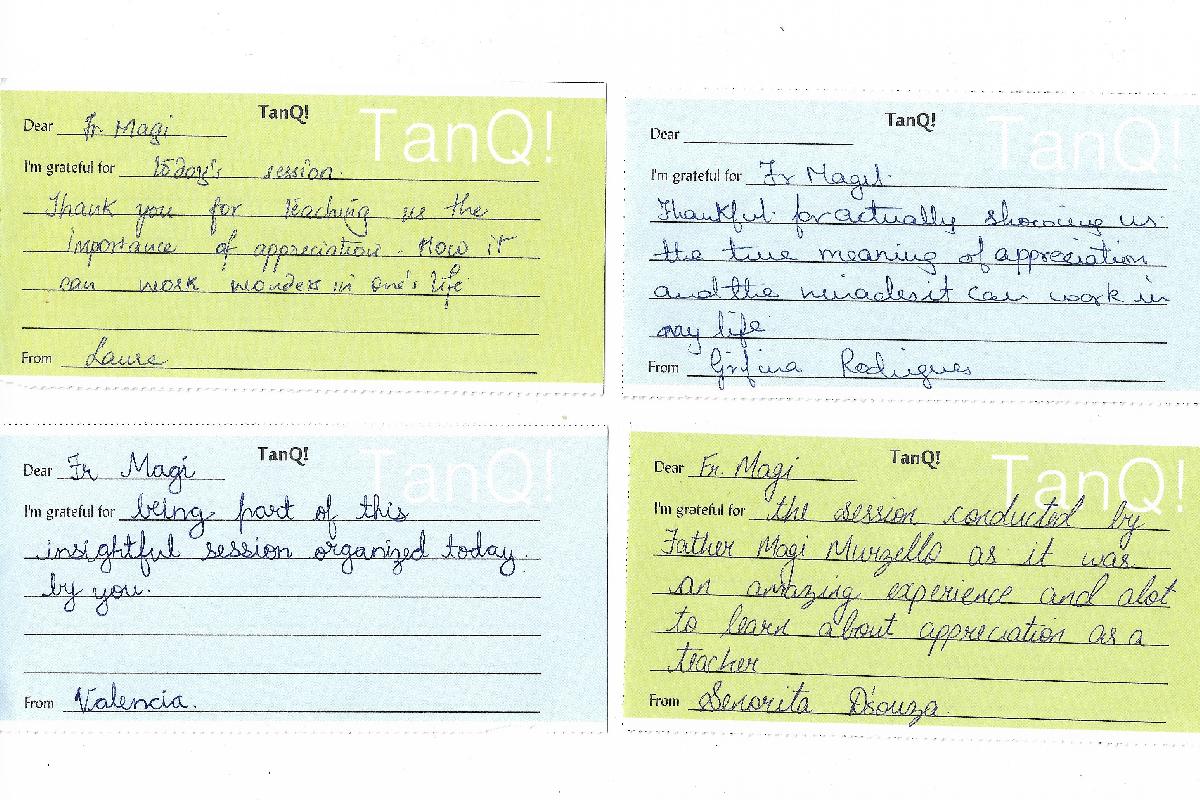 TanQ!
TanQ!
Dear Fr. Magi
I'm grateful for today's session.
Thank you for teaching us the
importance of appreciation. How it
can work wonders in one's life
From Laura
TanQ!
TanQ!
Dear
I'm grateful for Fr Magi.
Thankful for actually showing us
the true meaning of appreciation
and the miracles it can work in
my life
From Rodrigues
TanQ!
TanQ!
Dear Fr Magi
I'm grateful for being part of this
insightful session organized today
by you.
From Valencia.
TanQ!
TanQ!
Dear Fr. Magi
I'm grateful for the session conducted by
Father Magi Murzello as it was
an amazing experience and alot
to learn about appreciation as a
teacher
From Senorita D'souza.